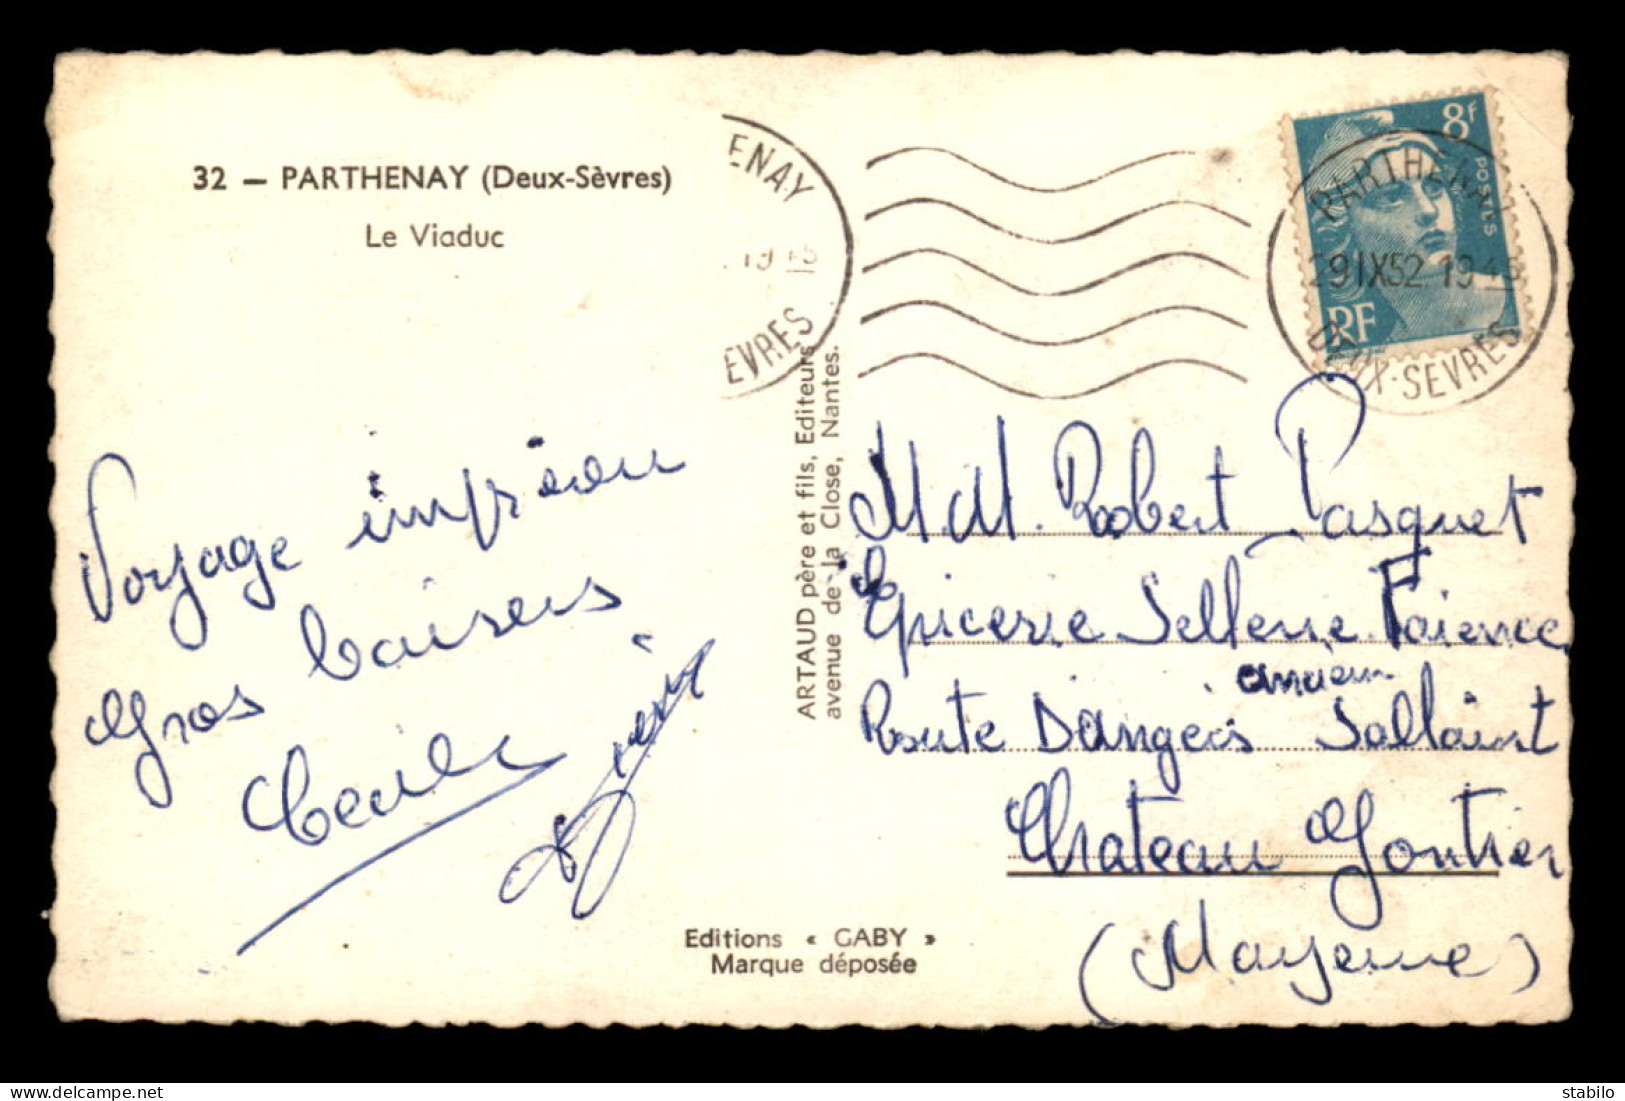 32 — PARTHENAY (Deux-Sèvres)
Le Viaduc
ENAY
EVRES
8f
POSTES
RF
PARTHENAY
29 IX 52 19 45
DEUX-SEVRES
Voyage
Gros baisers
Cecile
ARTAUD père et fils, Editeurs
avenue de la Close, Nantes.
M M. Robert Pasquet
Epicerie Sellerie Faience
ancien
Route Dangers Sallaint
Chateau Gontier
(Mayenne)
Editions « GABY »
Marque déposée
stabilo